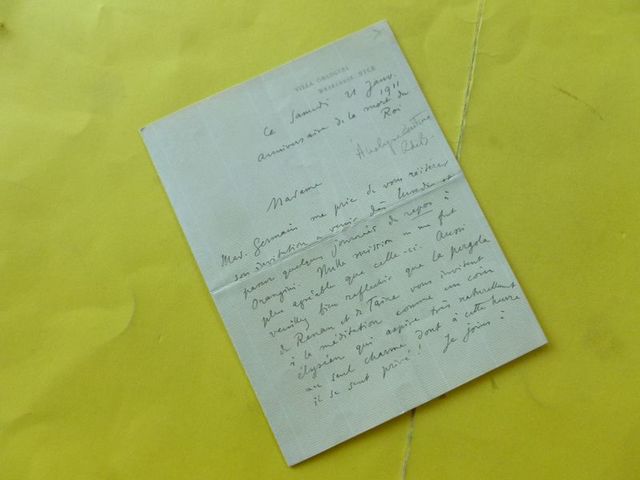 VILLA ORANGINI
ce Samedi 21 Janv. 1911
anniversaire de la mort du Roi
Madame
Mad. Germain me prie de vous réitérer
son invitation à venir dès
passer quelques journées de repos à
Orangini. Nulle mission ne me fut
plus agréable que celle-ci. Aussi
veuillez bien réfléchir que la pergola
de Renan et de Taine vous invitent
à la méditation comme un coin
élyséen qui aspire très naturellement
au seul charme dont à cette heure
il se sent privé! Je joins à